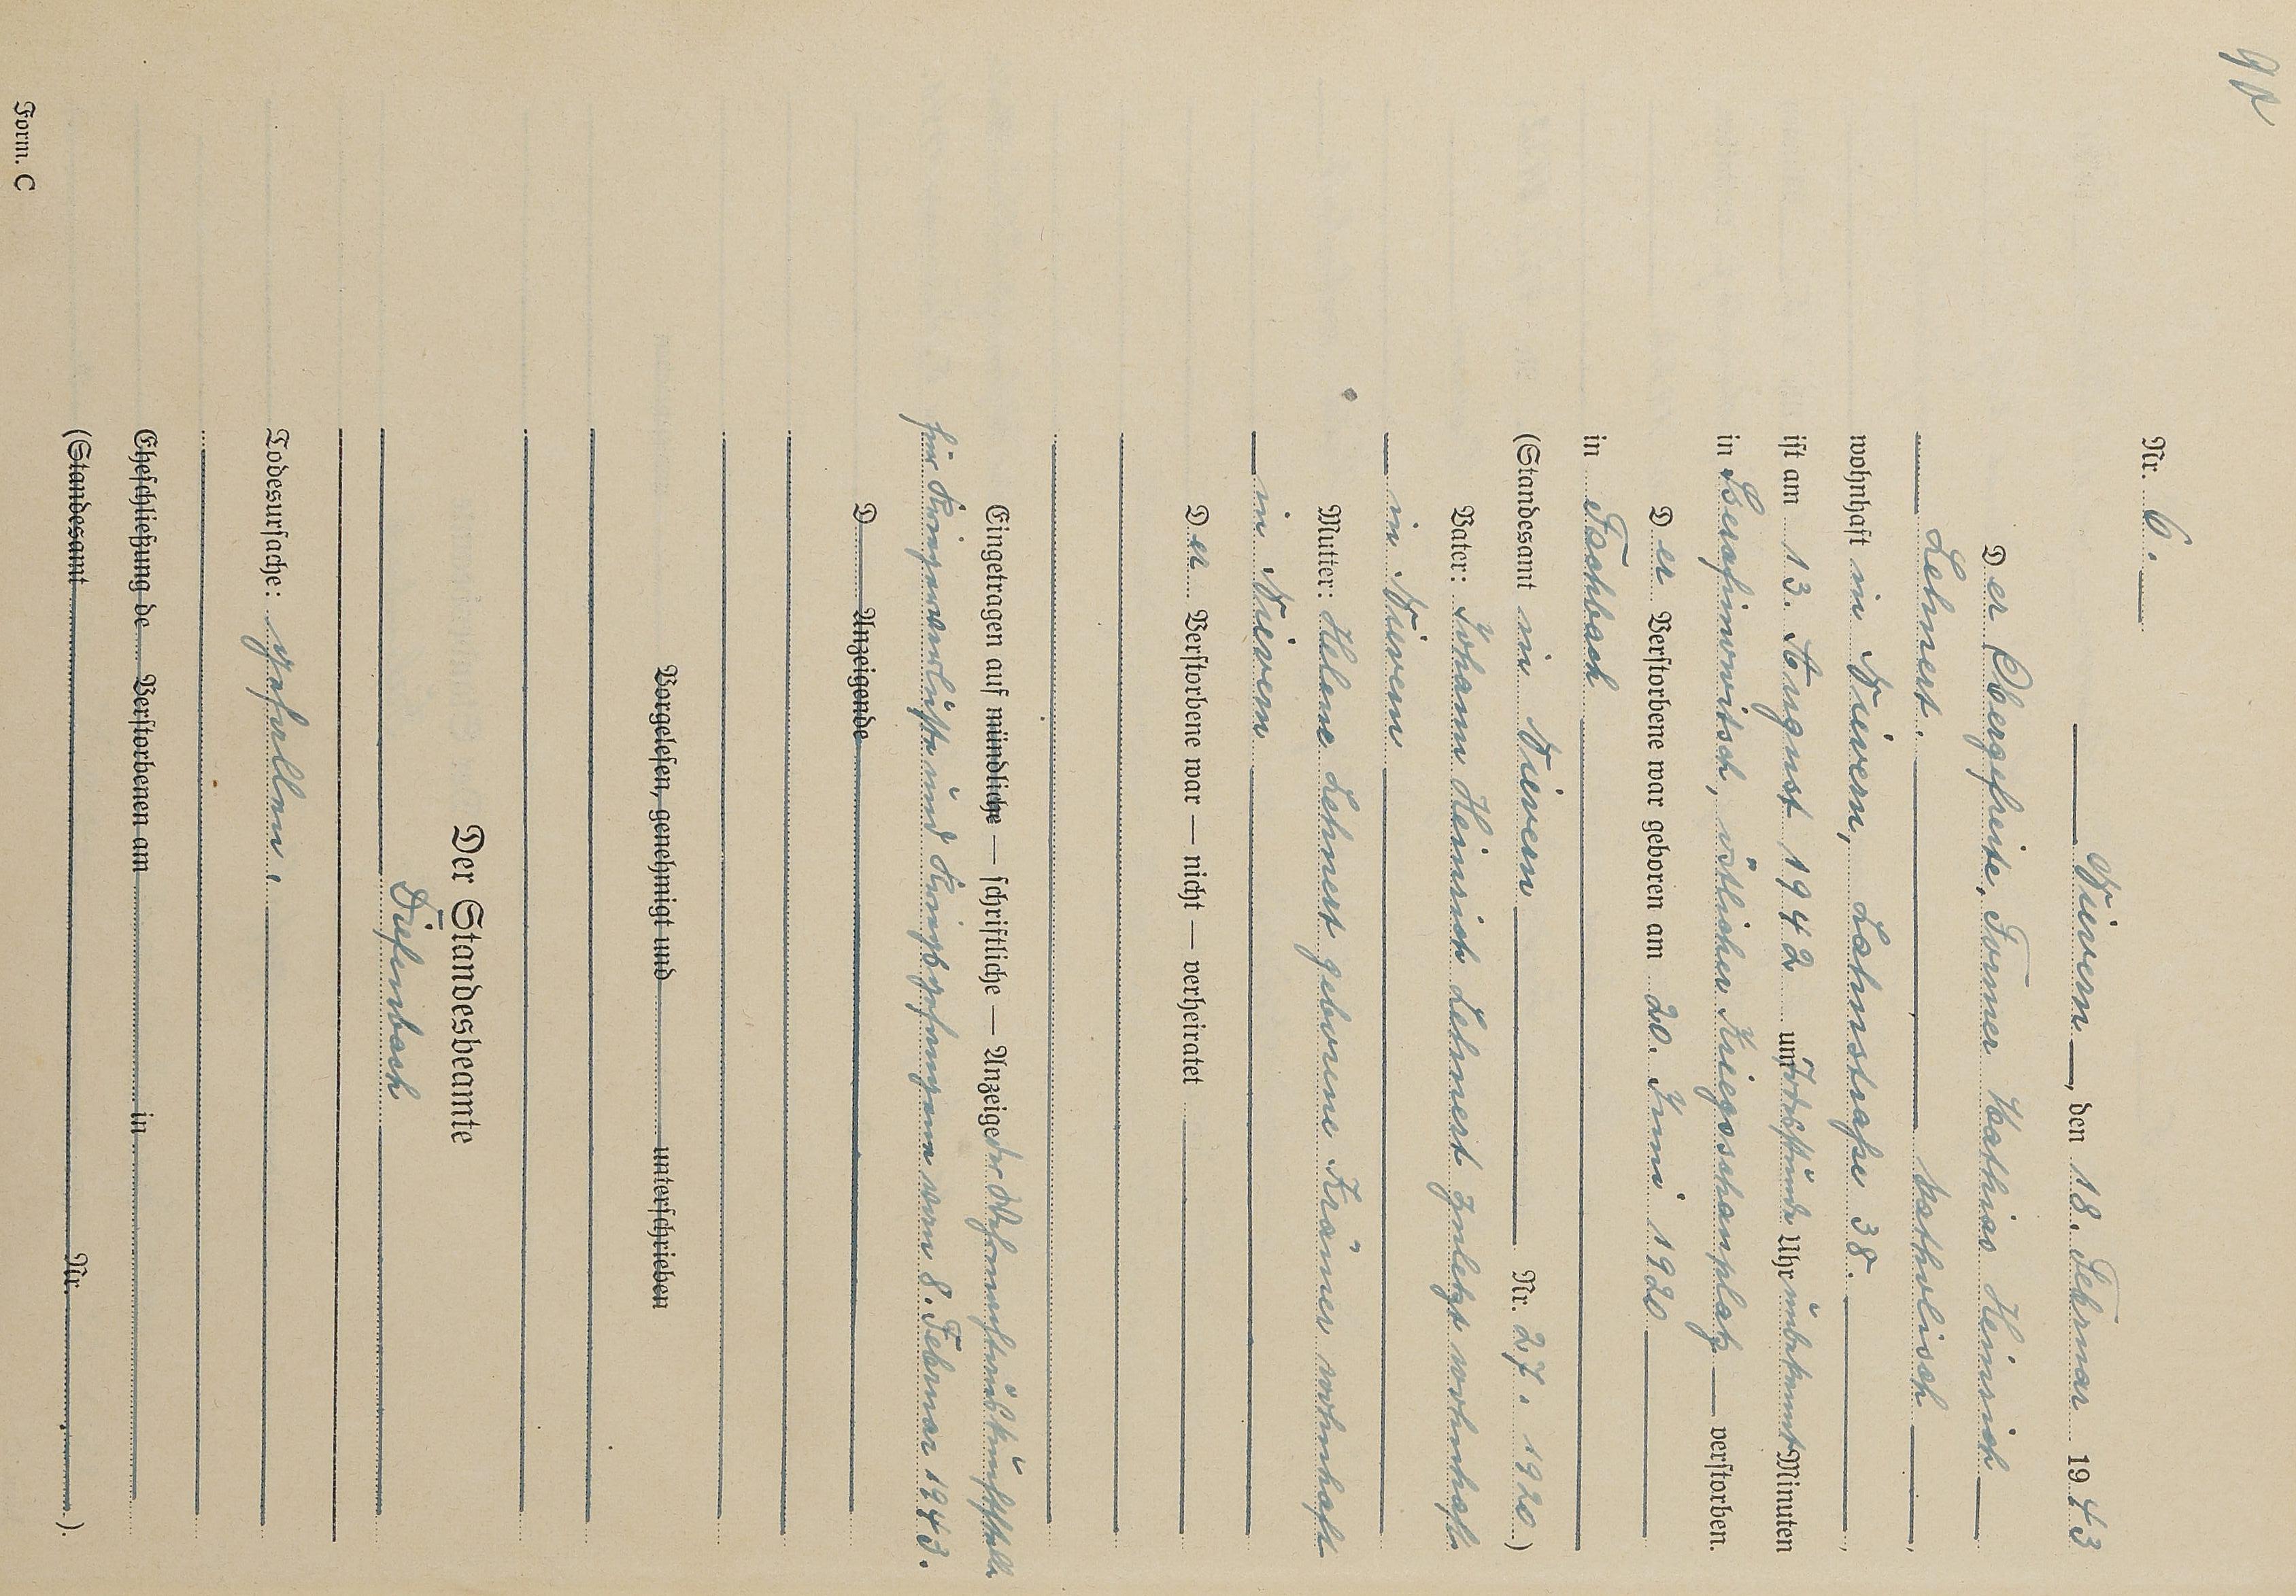 90
Nr. 6.
Nievern, den 18. Februar 1943
Der Obergefreite, Former Mathias Heinrich
Lehnert. katholisch,
wohnhaft in Nievern, Lahnstraße 38.,
ist am 13. August 1942 um Todesstunde Uhr unbekannt Minuten
in Gerasimowitsch, östlicher Kriegsschauplatz verstorben.
Der Verstorbene war geboren am 20. Juni 1920
in Fachbach
(Standesamt in Nievern Nr. 27. 1920.)
Vater: Johann Heinrich Lehnert zuletzt wohnhaft
in Nievern
Mutter: Helene Lehnert geborene Krämer wohnhaft
in Nievern
Der Verstorbene war — nicht — verheiratet
Eingetragen auf mündliche — schriftliche — Anzeige der Wehrmachtauskunftstelle
für Kriegerverluste und Kriegsgefangene vom 8. Februar 1943.
D Anzeigende
Vorgelesen, genehmigt und unterschrieben
Der Standesbeamte
Diefenbach
Todesursache: Gefallen.
Eheschließung de Verstorbenen am in
(Standesamt Nr. ).
Form. C